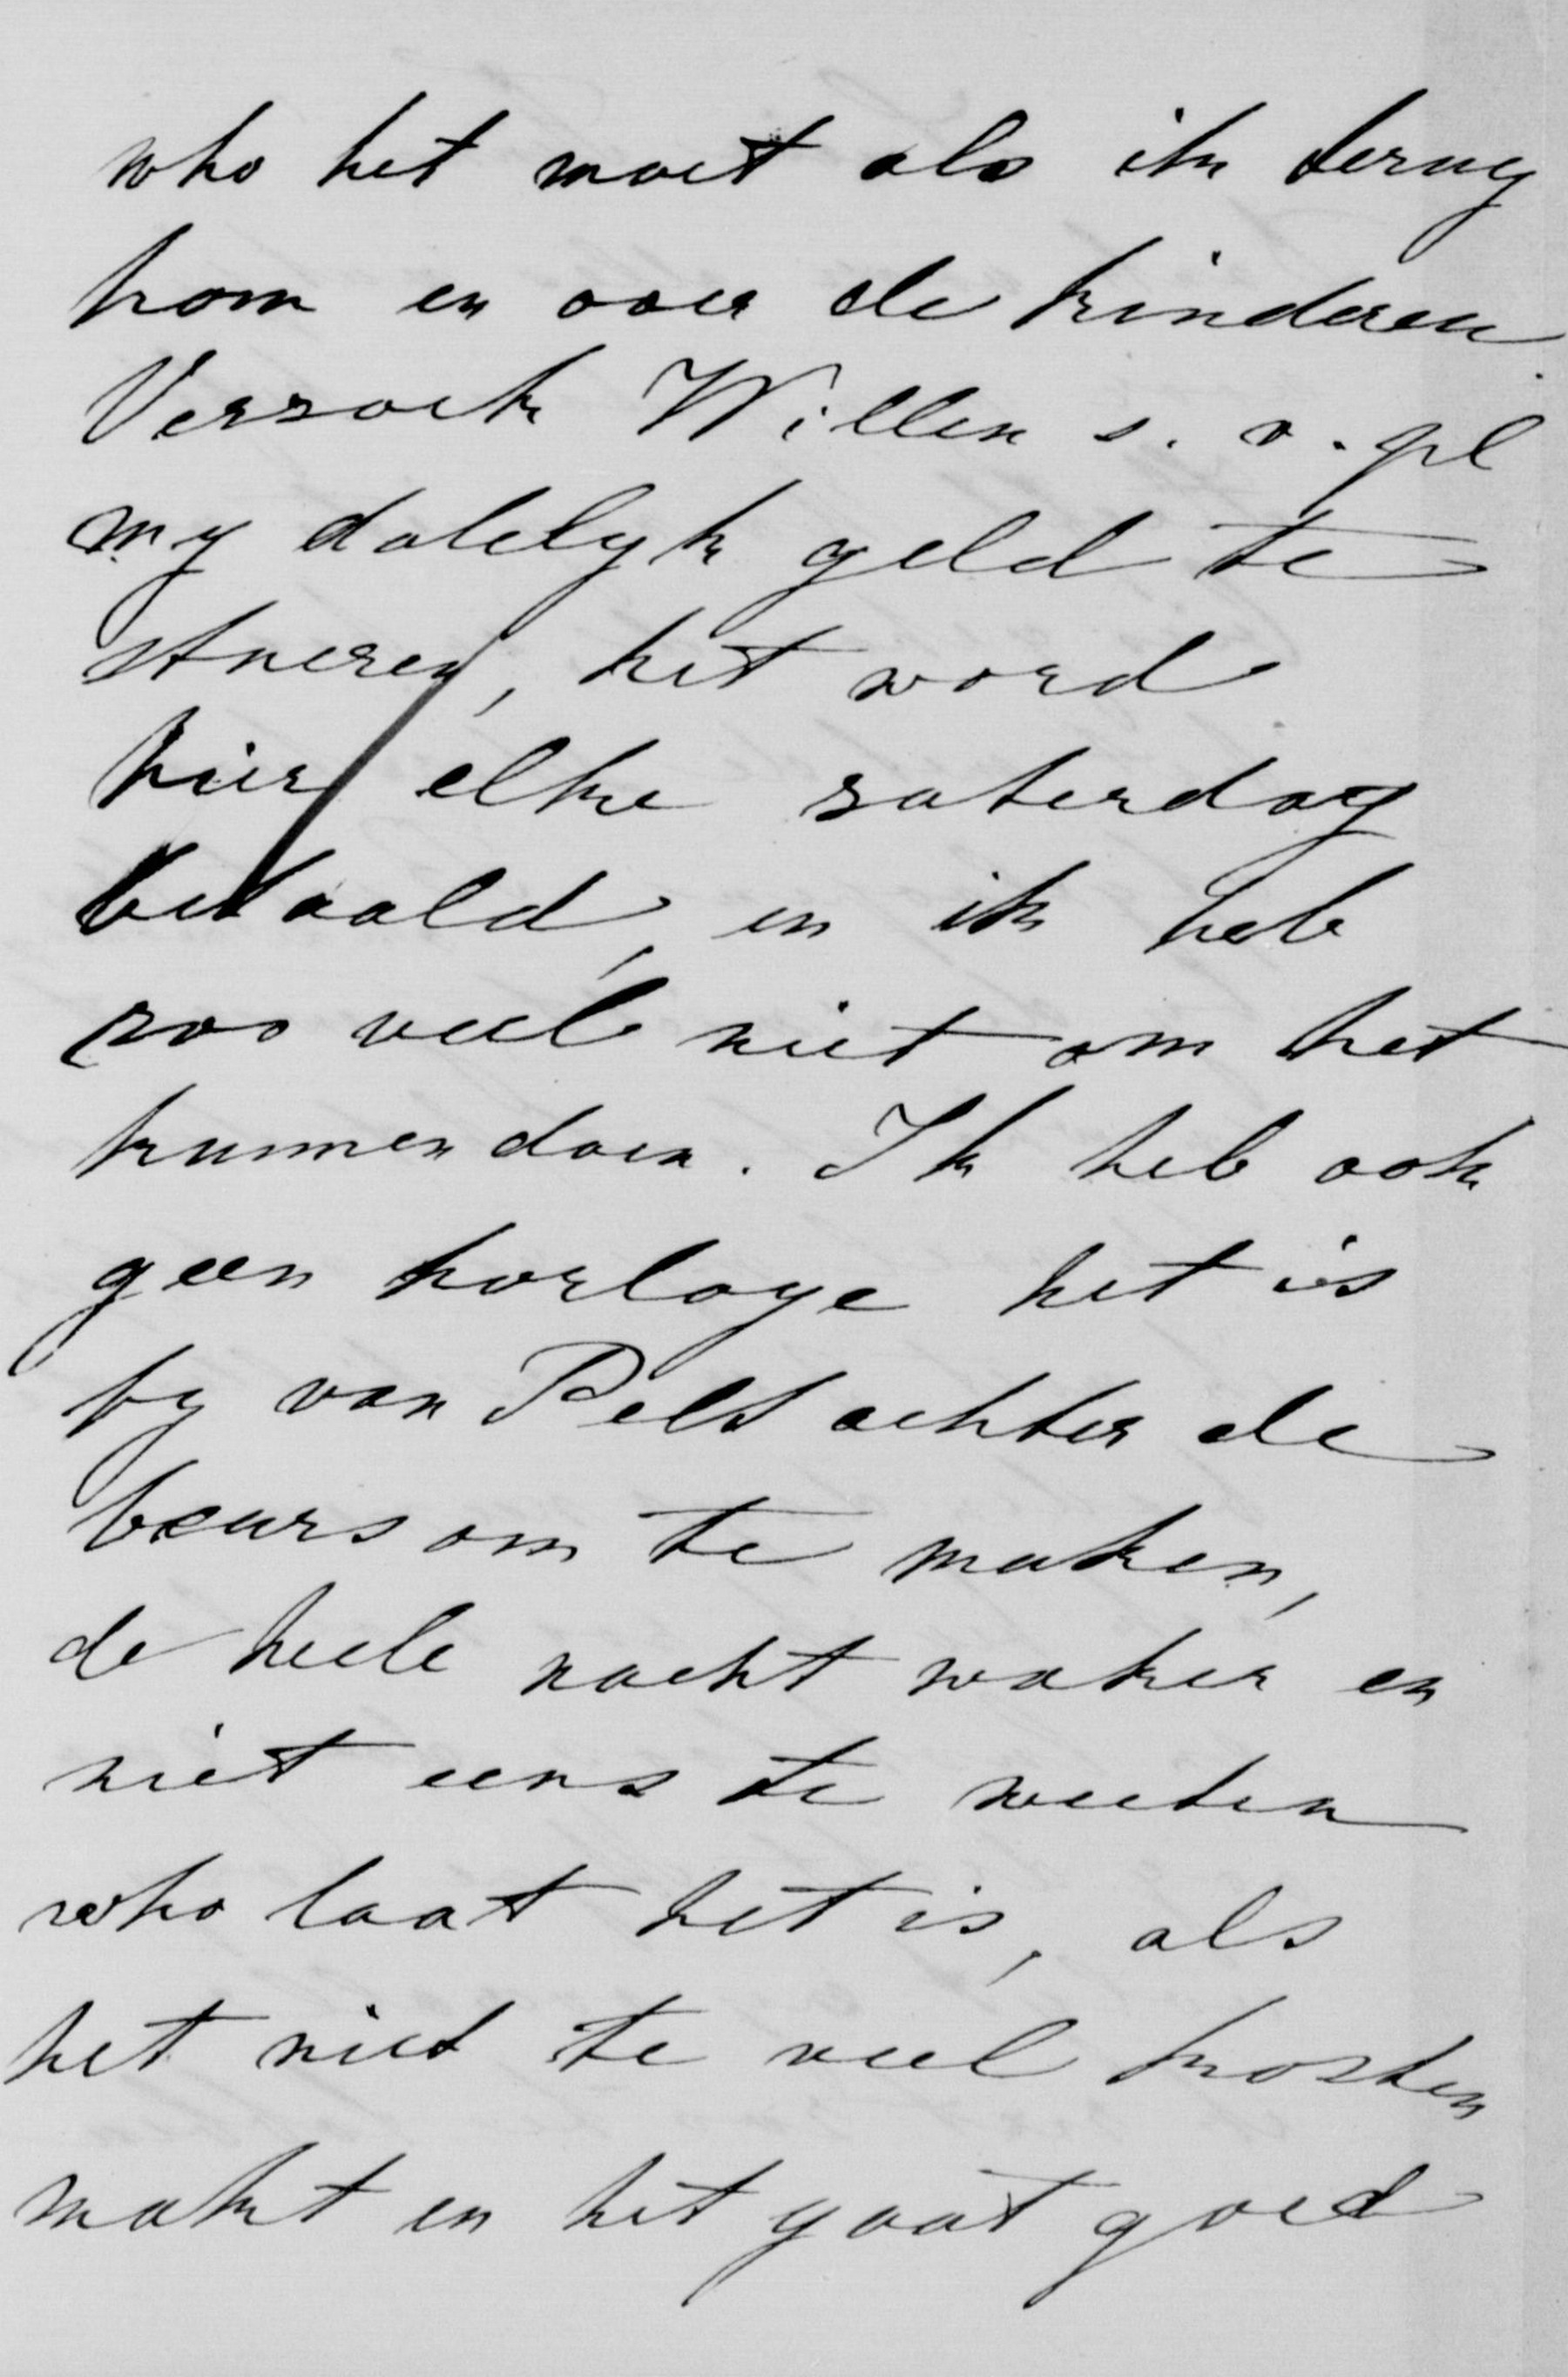 who het moet als ik terug
kom en over de kinderen
Verzoek Willem s. v. pl
my dalelyk geld te
stueren, het word
hier elke zaterdag
betaald, en ik heb
zoo veel niet om het
kunnen doen. Ik heb ook
geen horloge het is
by van Pelt achter de
beurs om te maken,
de heele nacht waken en
niet eens te weeten
who laat het is, als
het niet te veel kosten
makt en het gaat goed